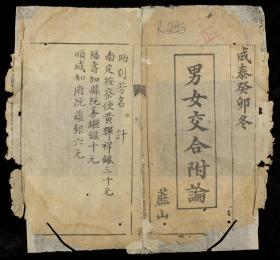 成泰癸卯冬
男女交合附論
蕉山
助刻芳名 計
南定按察使黃輝祥銀三十元
福壽知縣阮善繼銀十元
順成知府阮蘊銀六元